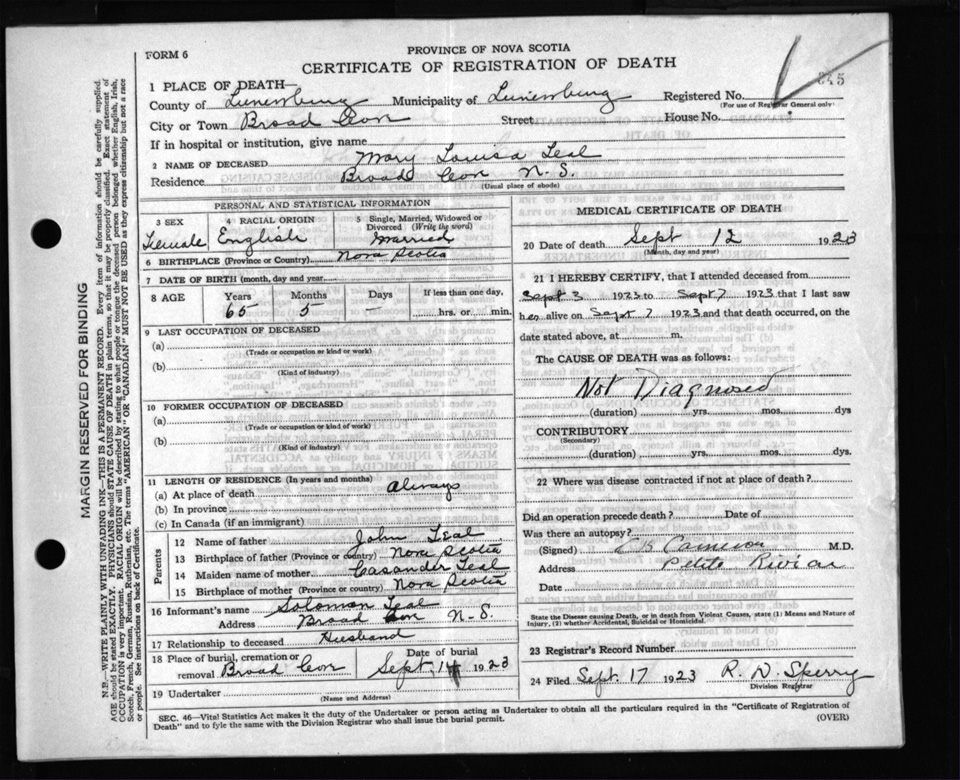 FORM 6
PROVINCE OF NOVA SCOTIA
CERTIFICATE OF REGISTRATION OF DEATH
345
1 PLACE OF DEATH—
County of Lunenburg Municipality of Lunenburg Registered No.
(For use of Registrar General only)
City or Town Broad Cove Street House No.
If in hospital or institution, give name
2 NAME OF DECEASED Mary Louisa Teal
Residence Broad Cove N. S.
(Usual place of abode)
PERSONAL AND STATISTICAL INFORMATION
3 SEX Female
4 RACIAL ORIGIN English
5 Single, Married, Widowed or Divorced (Write the word) Married
6 BIRTHPLACE (Province or Country) Nova Scotia
7 DATE OF BIRTH (month, day and year)
8 AGE Years 65 Months 5 Days — If less than one day, hrs. or min.
9 LAST OCCUPATION OF DECEASED
(a)
(Trade or occupation or kind of work)
(b)
(Kind of industry)
10 FORMER OCCUPATION OF DECEASED
(a)
(Trade or occupation or kind of work)
(b)
(Kind of industry)
11 LENGTH OF RESIDENCE (In years and months)
(a) At place of death always
(b) In province
(c) In Canada (if an immigrant)
Parents
12 Name of father John Teal
13 Birthplace of father (Province or country) Nova Scotia
14 Maiden name of mother Casander Teal
15 Birthplace of mother (Province or country) Nova Scotia
16 Informant's name Solomon Teal
Address Broad Cove N-S.
17 Relationship to deceased Husband
18 Place of burial, cremation or removal Broad Cove
Date of burial Sept. 14 1923
19 Undertaker
(Name and Address)
MEDICAL CERTIFICATE OF DEATH
20 Date of death Sept 12 1923
(Month, day and year)
21 I HEREBY CERTIFY, that I attended deceased from
Sept 3 1923 to Sept 7 1923 that I last saw
her alive on Sept 7 1923 and that death occurred, on the
date stated above, at m.
The CAUSE OF DEATH was as follows:
Not Diagnosed
(duration) yrs. mos. dys
CONTRIBUTORY
(Secondary)
(duration) yrs. mos. dys.
22 Where was disease contracted if not at place of death?
Did an operation precede death? Date of
Was there an autopsy?
(Signed) Cameron M.D.
Address Petite Riviere
Date
State the Disease causing Death, or in death from Violent Causes, state (1) Means and Nature of
Injury, (2) whether Accidental, Suicidal or Homicidal.
23 Registrar's Record Number
24 Filed Sept. 17 1923 R. D. Sperry
Division Registrar
SEC. 46—Vital Statistics Act makes it the duty of the Undertaker or person acting as Undertaker to obtain all the particulars required in the "Certificate of Registration of
Death" and to fyle the same with the Division Registrar who shall issue the burial permit.
(OVER)
MARGIN RESERVED FOR BINDING
N.B.—WRITE PLAINLY WITH UNFADING INK—THIS IS A PERMANENT RECORD. Every item of information should be carefully supplied.
AGE should be stated EXACTLY. PHYSICIANS should STATE CAUSE OF DEATH in plain terms, so that it may be properly classified. Exact statement of
OCCUPATION is very important. RACIAL ORIGIN will be described by stating to what people or tongue the deceased person belonged whether English, Irish,
Scotch, French, German, Russian, Ruthenian, etc. The terms "AMERICAN" OR "CANADIAN" MUST NOT BE USED as they express citizenship but not a race
or people. See instructions on back of Certificate.